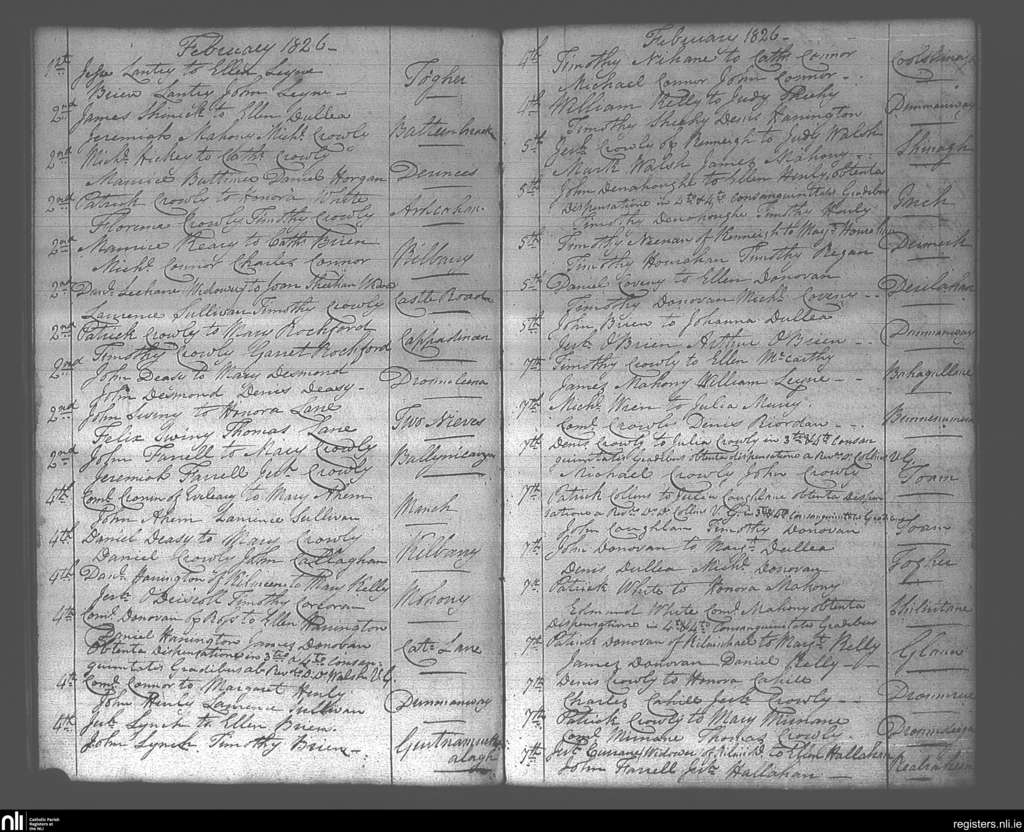 February 1826 -
1st Jesse Lantry to Ellen Leyne
Brien Lantry John Leyne - Togher
2nd James Shinick to Ellen Dullea
Jeremiah Mahony Michl. Crowly
2nd Michl. Hickey to Cathe. Crowly
Maurice Buttimer Daniel Horgan Derinces
2nd Patrick Crowly to Honora White
Florence Crowly Timothy Crowly
2nd Maurice Keary to Cathe. Brien
Michl. Connor Charles Connor Kilbany
2nd Danl. Leehane Widower to Joan Sheehan
Laurence Sullivan Timothy Crowly Castle Road
2nd Patrick Crowly to Mary Rochford
Timothy Crowly Garret Rochford
2nd John Deasy to Mary Desmond
John Desmond Denis Deasy - Dromaleena
2nd John Swiny to Honora Lane
Felix Swiny Thomas Lane
2nd John Farrell to Mary Crowly
Jeremiah Farrell Jerh. Crowly
4th Corns. Cronin of to Mary Ahern
John Ahern Laurence Sullivan Manch
4th Daniel Deasy to Mary Crowly
Daniel Crowly John Callaghan Kilbany
4th Danl. Harington of Kilmeen to Mary Kelly
Jerh. O'Driscoll Timothy Corcoran
4th Corns. Donovan of Ross to Ellen Harington
Daniel Harington James Donovan Cats Lane
Obtenta Dispensatione in 3tio & 4to Consan
guinitatis Gradibus ab Revdo. D. D. Walsh V.G.
4th Corns. Connor to Margaret Henly
John Henly Laurence Sullivan Dunmanway
4th Jerh. Lynch to Ellen Brien
John Lynch Timothy Brien -
February 1826 -
4th Timothy Nihane to Cathe. Connor
Michael Connor John Connor -
4th William Kelly to Judy Sheehy
Timothy Sheehy Denis Harington Dunmanway
5th Jerh. Crowly of Kenneigh to Judy Walsh
Mark Walsh James Mahony - Shinagh
5th John Donahoughe to Ellen Henly, obtenta
Dispensatione in 4to & 4to consanguinitatis Gradibus
Timothy Donohoughe Timothy Henly Inch
5th Timothy Neenan of Kenneigh to Margt. Hourihan
Timothy Hourihan Timothy Regan
5th Daniel Coveny to Ellen Donovan
Timothy Donovan Michl. Coveny -
5th John Brien to Johanna Dullea
Jerh. O'Brien Arthur O'Brien - Dunmanway
7th Timothy Crowly to Ellen McCarthy
James Mahony William Leyne -
7th Michl. Wren to Julia
Corns. Crowly Denis Riordan -
7th Denis Crowly to Julia Crowly in 3tio & 4to Consan
guinitatis Gradibus obtenta dispensatione a Revdo. D. Collins V.G.
Michael Crowly John Crowly Toam
7th Patrick Collins to Julia Coughlane obtenta Dispen
satione a Revdo. D. D. Collins V.G. in 3tio & 4to Consanguinitatis Gradibus
John Coughlan Timothy Donovan Toam
7th John Donovan to Margt. Dullea
Denis Dullea Michl. Donovan Togher
7th Patrick White to Honora Mahony
Edmund White Corns. Mahony obtenta
Dispensatione in 4to & 4to Consanguinitatis Gradibus
7th Patrick Donovan of Kilmichael to Margt. Kelly
James Donovan Daniel Kelly -
7th Denis Crowly to Honora Cahill
Charles Cahill Jerh. Crowly -
7th Patrick Crowly to Mary Murnane
Corns. Murnane Thomas Crowly.
7th Jerh. Currane Widower of Kilmichl. to Ellen Hallahan
John Farrell Jerh. Hallahan -
nli Catholic Parish Registers at the NLI
registers.nli.ie